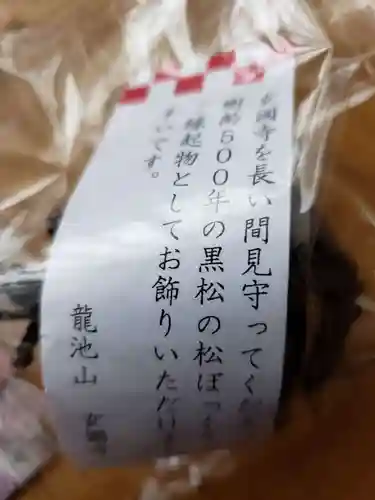 國寺を長い間見守ってく
樹齢600年の黒松の松ぼっ
縁起物としてお飾りいただけ
いです。
龍池山